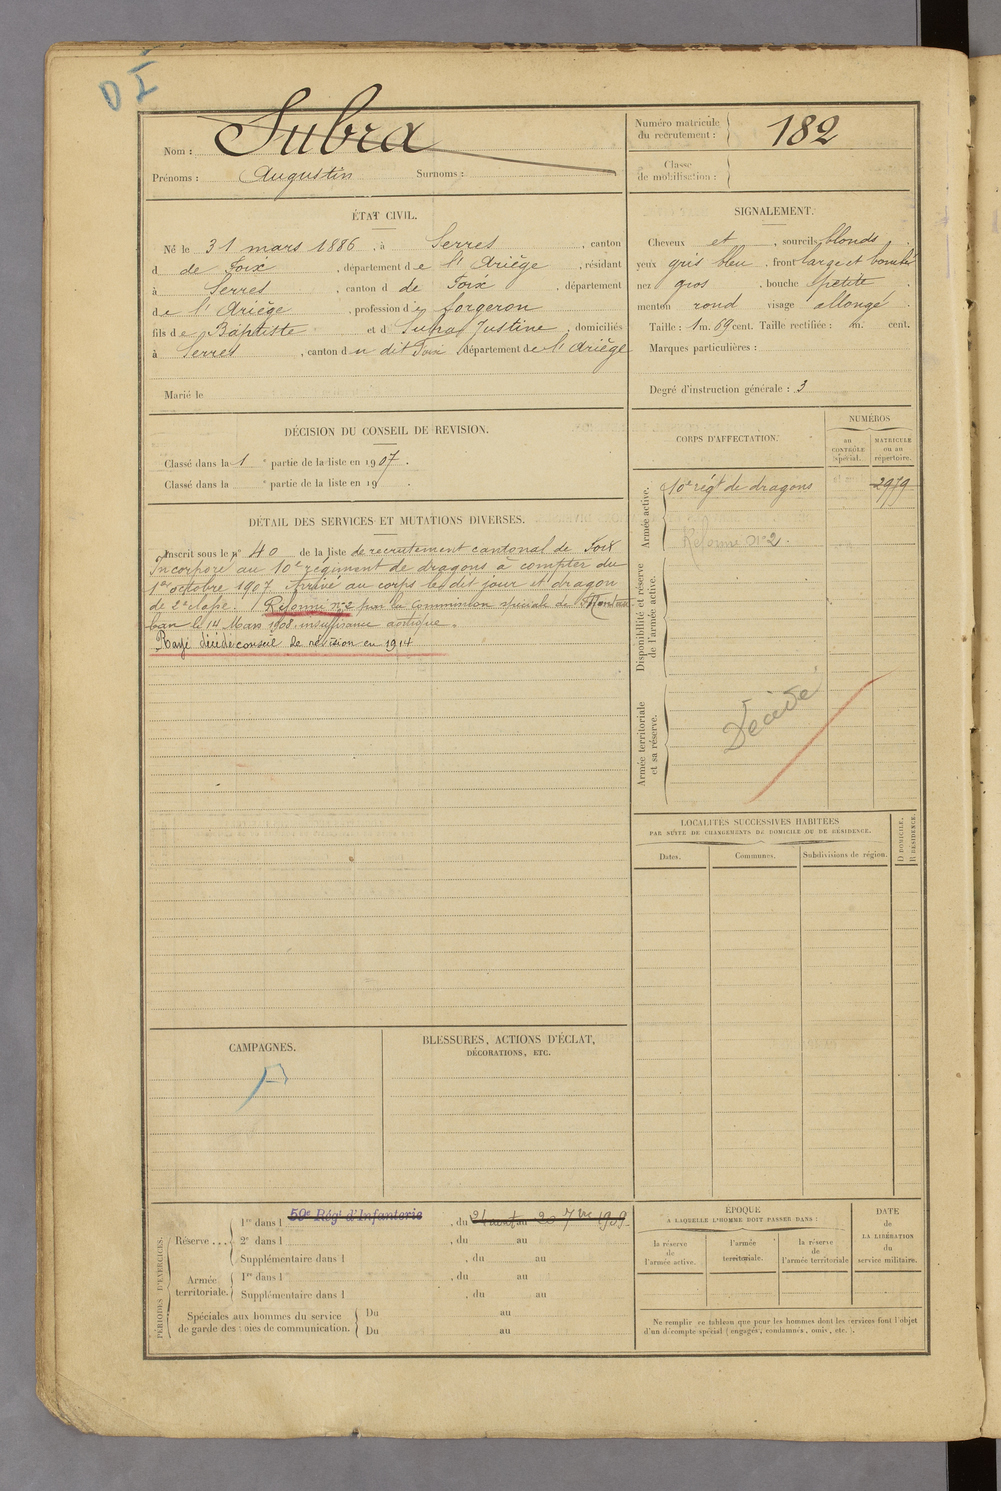 D I
Nom : Subra
Prénoms : Augustin Surnoms :
Numéro matricule du recrutement : 182
Classe de mobilisation :
ÉTAT CIVIL.
Né le 31 mars 1886, à Serres, canton
d de Foix, département de l'Ariège, résidant
à Serres, canton d de Foix, département
de l'Ariège, profession de forgeron
fils de Baptiste et d Justine, domiciliés
à Serres, canton du dit Foix, département de l'Ariège
Marié le
SIGNALEMENT.
Cheveux et, sourcils blonds.
yeux gris bleu, front large et bombé
nez gros, bouche petite.
menton rond visage allongé
Taille : 1 m. 69 cent. Taille rectifiée : m. cent.
Marques particulières :
Degré d'instruction générale : 3
DÉCISION DU CONSEIL DE REVISION.
Classé dans la 1e partie de la liste en 1907.
Classé dans la e partie de la liste en 19 .
DÉTAIL DES SERVICES ET MUTATIONS DIVERSES.
Inscrit sous le n° 40 de la liste de recrutement cantonal de Foix
Incorporé au 10e régiment de dragons à compter du
1er octobre 1907. Arrivé au corps le dit jour et dragon
de 2e classe. Réformé n° 2 par la Commission spéciale de Montau
ban le 14 Mars 1908. insuffisance aortique.
Rayé décédé conseil de révision en 1914
CORPS D'AFFECTATION.
NUMÉROS
au CONTRÔLE spécial.
MATRICULE ou au répertoire.
Armée active.
10e régt de dragons 2979
Réformé N° 2.
Disponibilité et réserve de l'armée active.
Armée territoriale et sa réserve.
Décédé
LOCALITÉS SUCCESSIVES HABITÉES
PAR SUITE DE CHANGEMENTS DE DOMICILE OU DE RÉSIDENCE.
Dates. Communes. Subdivisions de région.
D DOMICILE.
R RÉSIDENCE.
CAMPAGNES.
BLESSURES, ACTIONS D'ÉCLAT,
DÉCORATIONS, ETC.
PÉRIODES D'EXERCICES.
Réserve ...
1re dans l 59e Régt d'Infanterie, du 24 aout au 20 7bre 1909.
2e dans l , du au
Supplémentaire dans l , du au
Armée territoriale.
1re dans l , du au
Supplémentaire dans l , du au
Spéciales aux hommes du service
de garde des voies de communication.
Du au
Du au
ÉPOQUE
A LAQUELLE L'HOMME DOIT PASSER DANS :
la réserve de l'armée active.
l'armée territoriale.
la réserve de l'armée territoriale
DATE
de
LA LIBÉRATION
du
service militaire.
Ne remplir ce tableau que pour les hommes dont les services font l'objet
d'un décompte spécial (engagés, condamnés, omis, etc.).